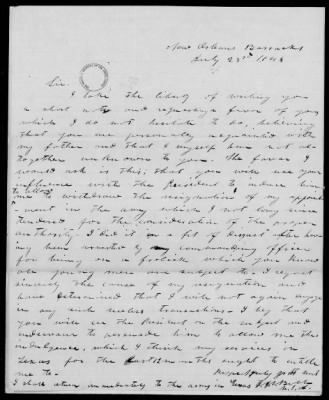 New Orleans Barracks
July 23rd 1846
Sir.
I take the liberty of writing you
a short note and requesting a favor of you
which I do not hesitate to do, believing
that you are personally acquainted with
my father and that I myself am not al-
together unknown to you. The favor I
would ask is this; that you will use your
influence with the President to induce him
to allow
me to withdraw the resignation of my appoint
ment in the army which I not long since
tendered for the consideration of the proper
authority. I did it in a fit of disgust after hav
ing been arrested by my commanding officer
for being on a frolick which you know
all young men are subject to. I regret
sincerely the cause of my resignation and
have determined that I will not again engage
in any such transactions. I beg that
you will see the President on the subject and
endeavour to persuade him to allow me this
indulgence, which I think my services in
Texas for the last months ought to entitle
me to.
Respectfully
I shall return immediately to the army in Texas
U.S.A.